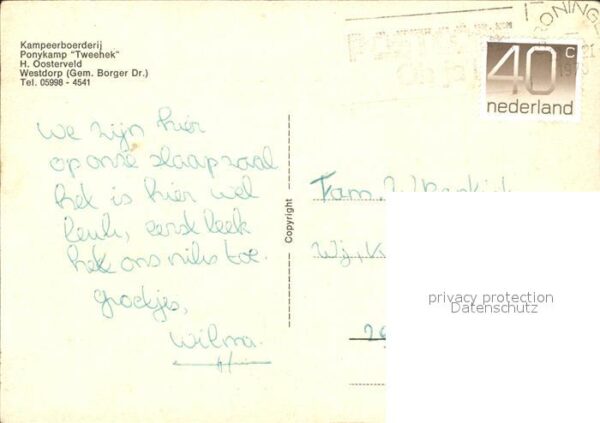 Kampeerboerderij
Ponykamp "Tweehek"
H. Oosterveld
Westdorp (Gem. Borger Dr.)
Tel. 05998 - 4541
GRONINGE
21
1976
40 c
nederland
we zijn hier
op onze slaapzaal
het is hier wel
leuk, eerst leek
het ons niks toe.
groetjes,
Wilma.
Copyright
Fam. W
Wij, K
26
privacy protection
Datenschutz